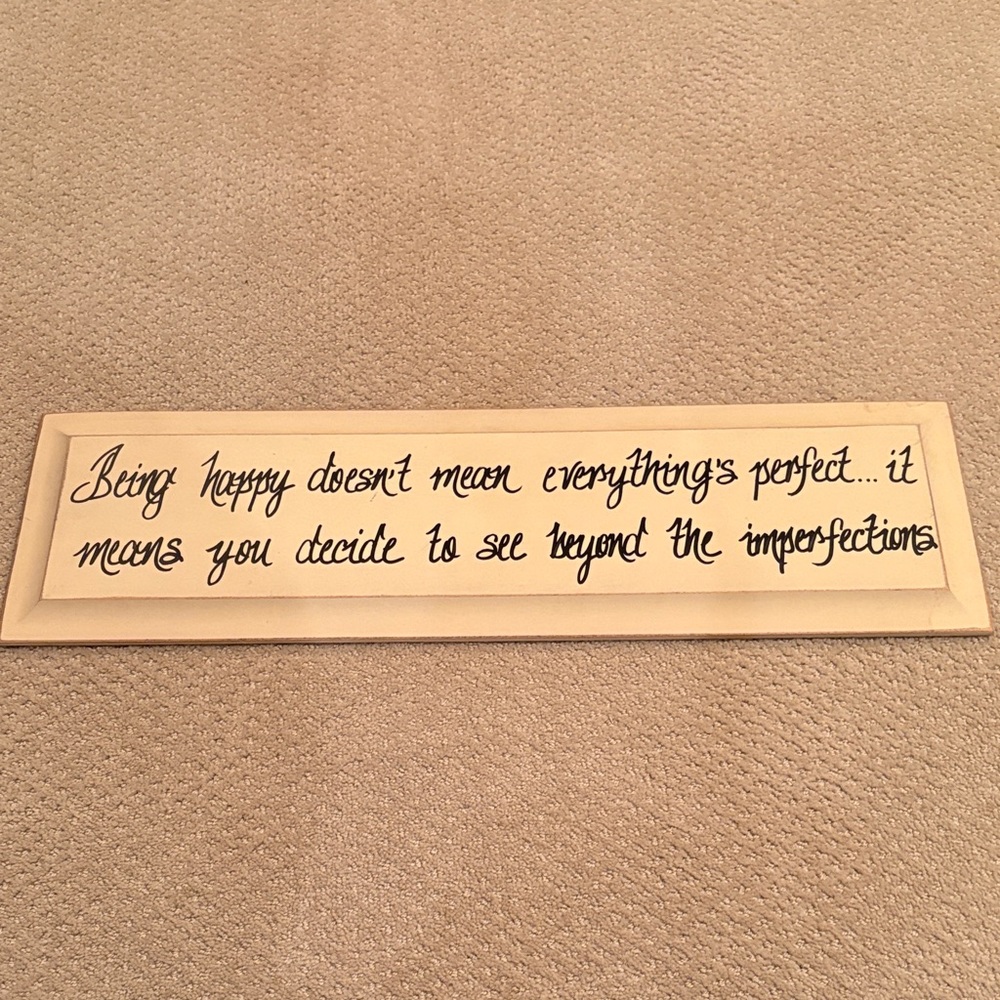 Being happy doesn't mean everything's perfect... it
means you decide to see beyond the imperfections.